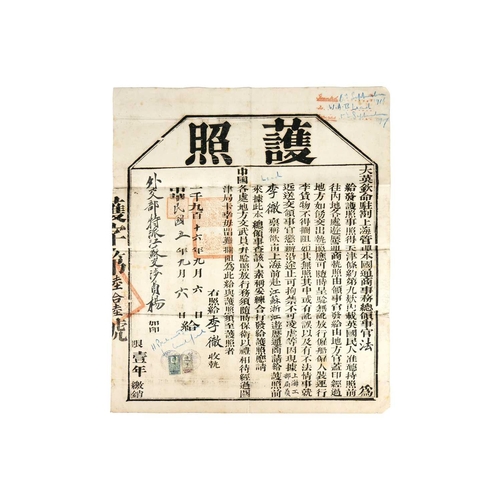 護照
大英欽命駐劄上海管理本國通商事務總領事官法 為
給發護照事照得天津條約第九款內載英國民人准聽持照前
往內地各處遊歷通商執照由領事官發給由地方官蓋印經過
地方如飭交出執照應可隨時呈驗無訛放行僱船僱人裝運行
李貨物不得攔阻如其無照其中或有訛誤以及有不法情事就
近送交領事官懲辦沿途止可拘禁不可凌虐等因現據上海工部局
李徵 稟稱欲由上海前赴江蘇浙江遊歷通商請給護照前
來據此本總領事查該人素稱安練合行發給護照應請
中國各處地方文武員弁驗照放行務須隨時保衛以禮相待經過關
津局卡幸毋留難攔阻為此給與護照須至護照者
右照給 李徵 收執
一千九百十六年九月六日
中華民國五年九月六日 給
外交部特派江蘇交涉員楊 加印
限壹年繳銷
護字第 號